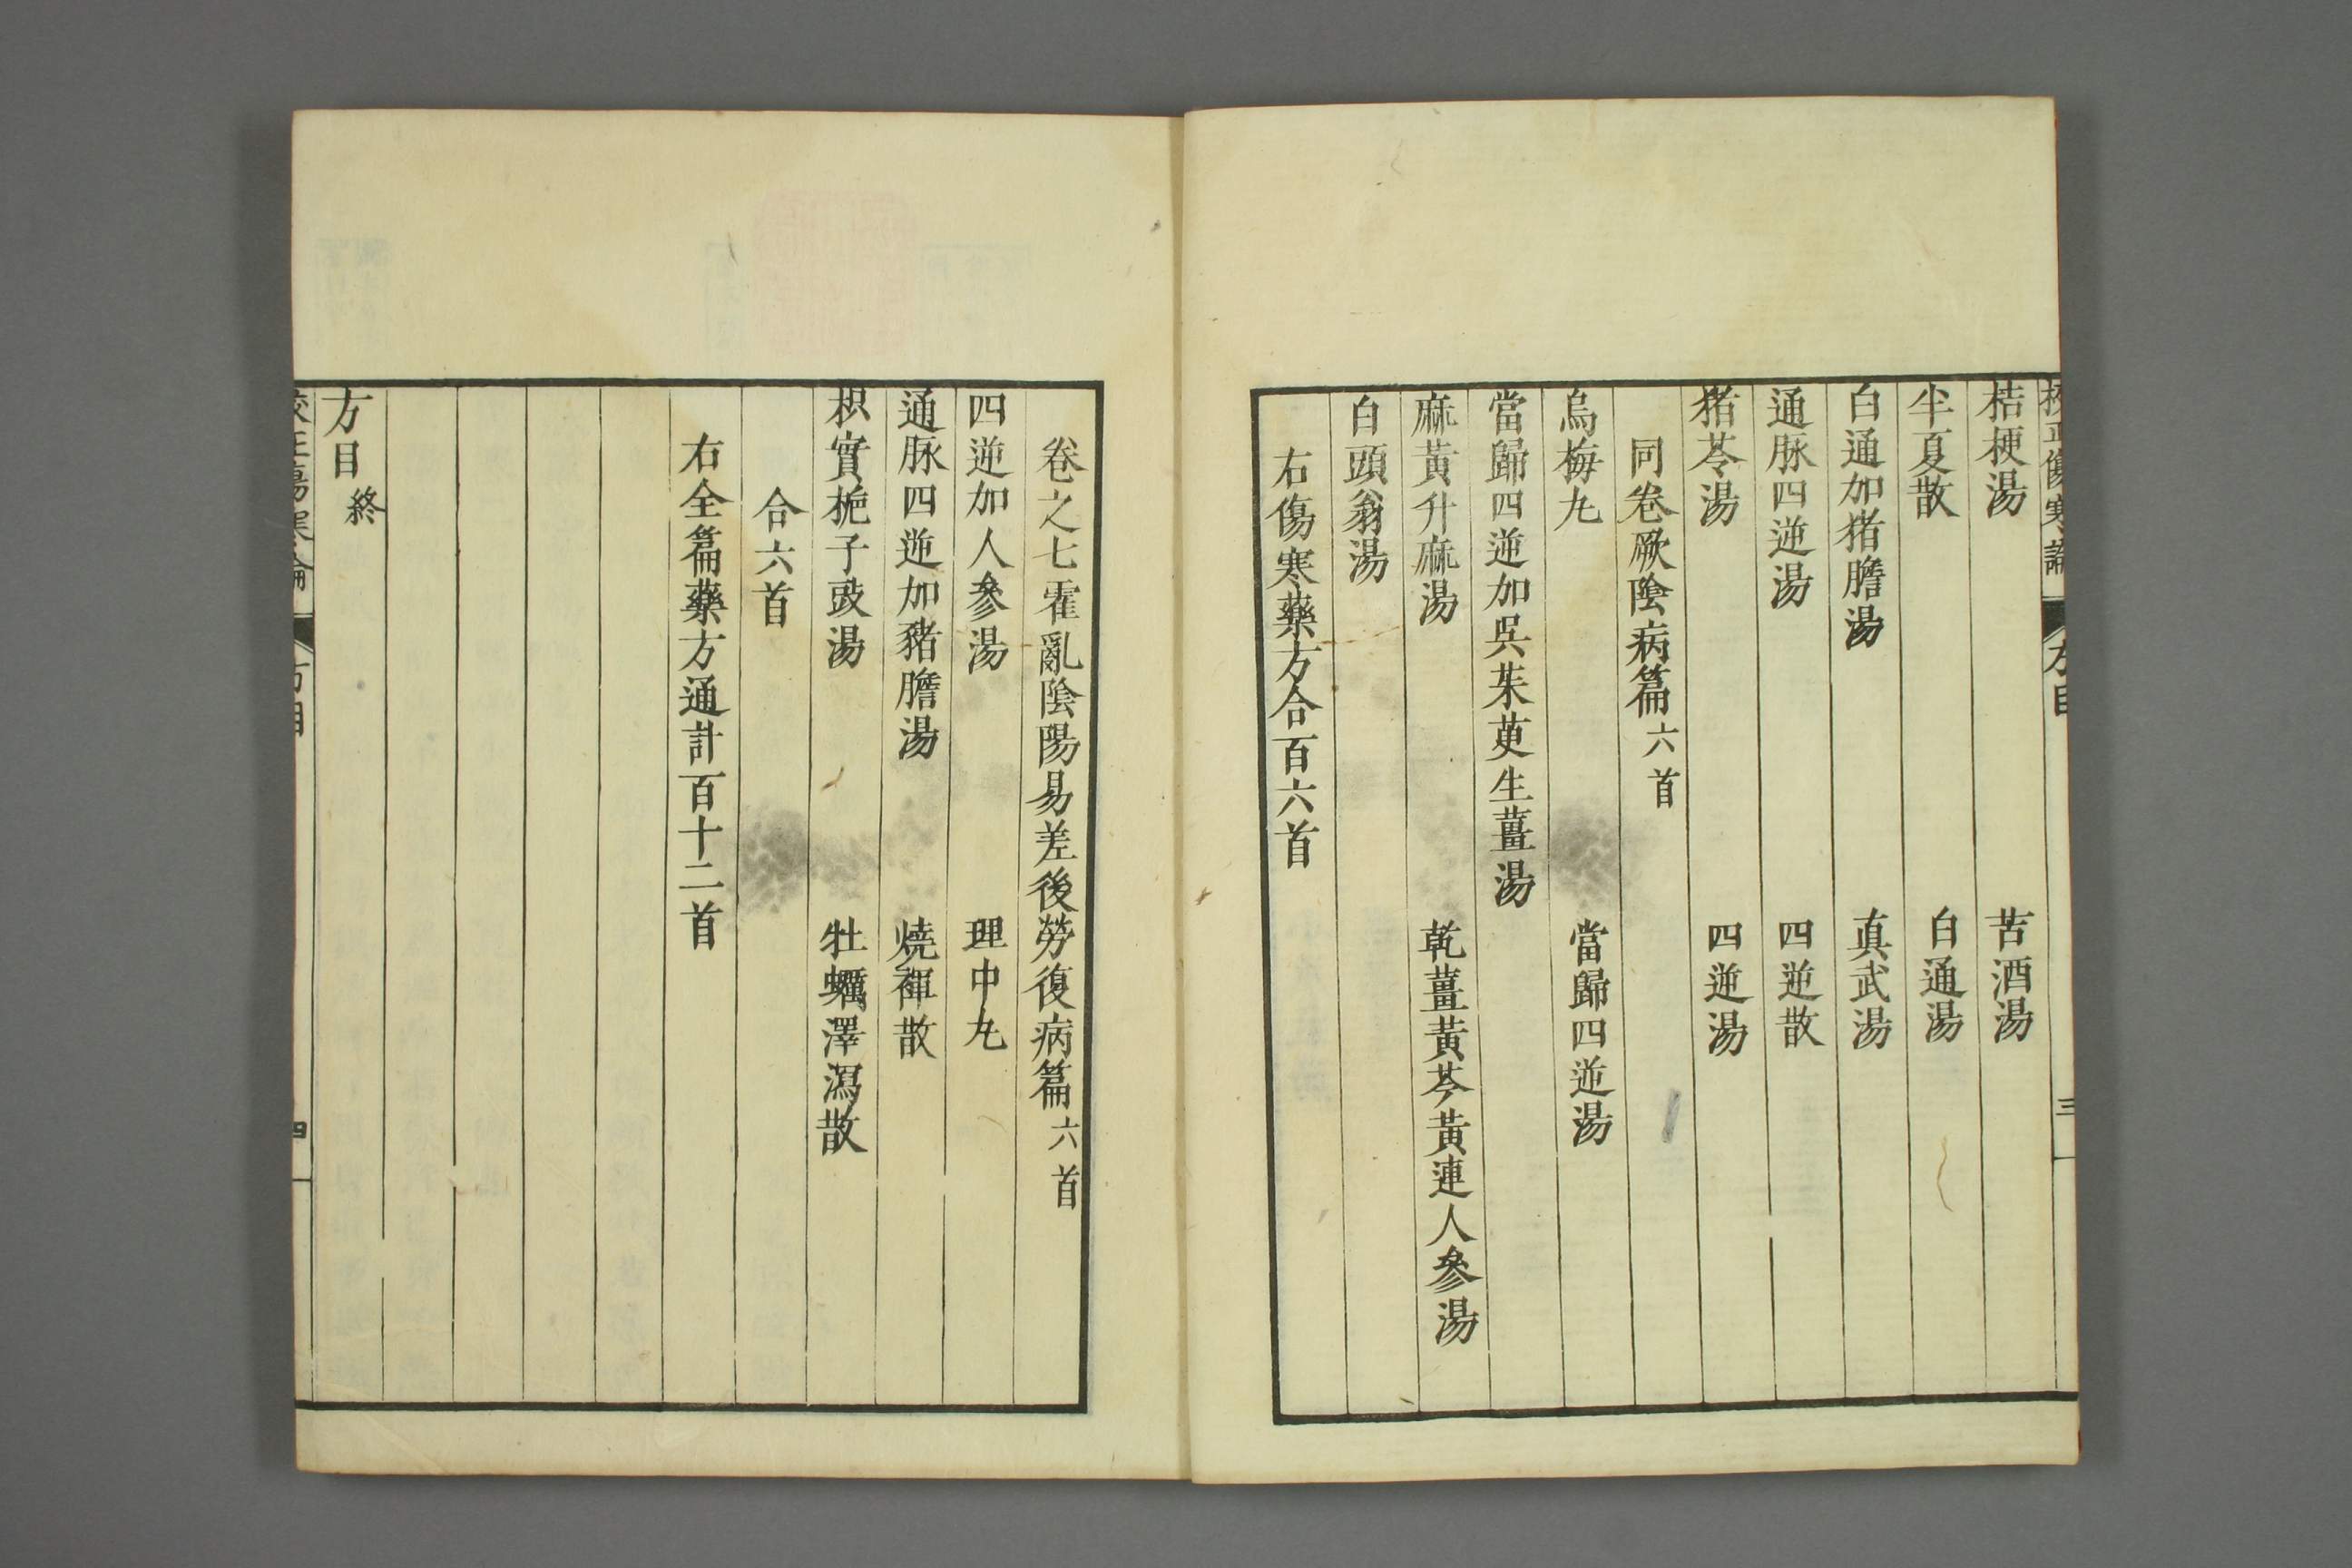 校正傷寒論 方目 三
桔梗湯 苦酒湯
半夏散 白通湯
白通加猪膽湯 真武湯
通脉四逆湯 四逆散
猪苓湯 四逆湯
同卷厥陰病篇六首
烏梅丸 當歸四逆湯
當歸四逆加吳茱萸生薑湯
麻黃升麻湯 乾薑黃芩黃連人參湯
白頭翁湯
右傷寒藥方合百六首
卷之七霍亂陰陽易差後勞復病篇六首
四逆加人參湯 理中丸
通脉四逆加豬膽湯 燒裈散
枳實梔子豉湯 牡蠣澤瀉散
合六首
右全篇藥方通計百十二首
方目終
校正傷寒論 方目 四